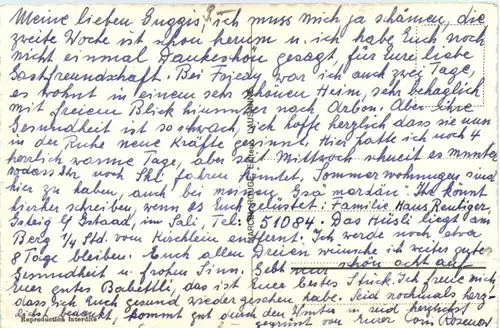 Meine lieben Guggis, ich muss mich ja schämen, die
zweite Woche ist schon herum u. ich habe Euch noch
nicht einmal Dankeschön gesagt, für Eure liebe
Gastfreundschaft. Bei war ich auch zwei Tage,
es wohnt in einem sehr schönen Heim, sehr behaglich
mit freiem Blick hinunter nach Arbon. Aber ihre
Gesundheit ist so schwach, ich hoffe herzlich dass sie nun
in der Ruhe neue Kräfte gewinnt. Hier hatte ich noch 4
herrlich warme Tage, aber seit Mittwoch schneit es munter
sodass Ihr noch Ski fahren könntet. Sommerwohnungen sind
hier zu haben, auch bei meinen Ihr könnt
hierher schreiben, wenn es Euch gelüstet. Familie Hans
Gsteig b/ Gstaad, im Sali, Tel: 51084. Das Hüsli liegt am
Berg 1/4 Std. vom Kirchlein entfernt. Ich werde noch etwa
8 Tage bleiben. Euch allen Dreien wünsche ich weiter gute
Gesundheit u. frohen Sinn. Gebt nur schön acht auf
Euer gutes Babettli, das ist Euer bestes Stück. Ich freue mich,
dass ich Euch gesund wiedergesehen habe. Seid nochmals herzl.
bedankt, kommt gut durch den Winter u. seid herzlichst
gegrüsst von Eurer
Reproduction Interdite